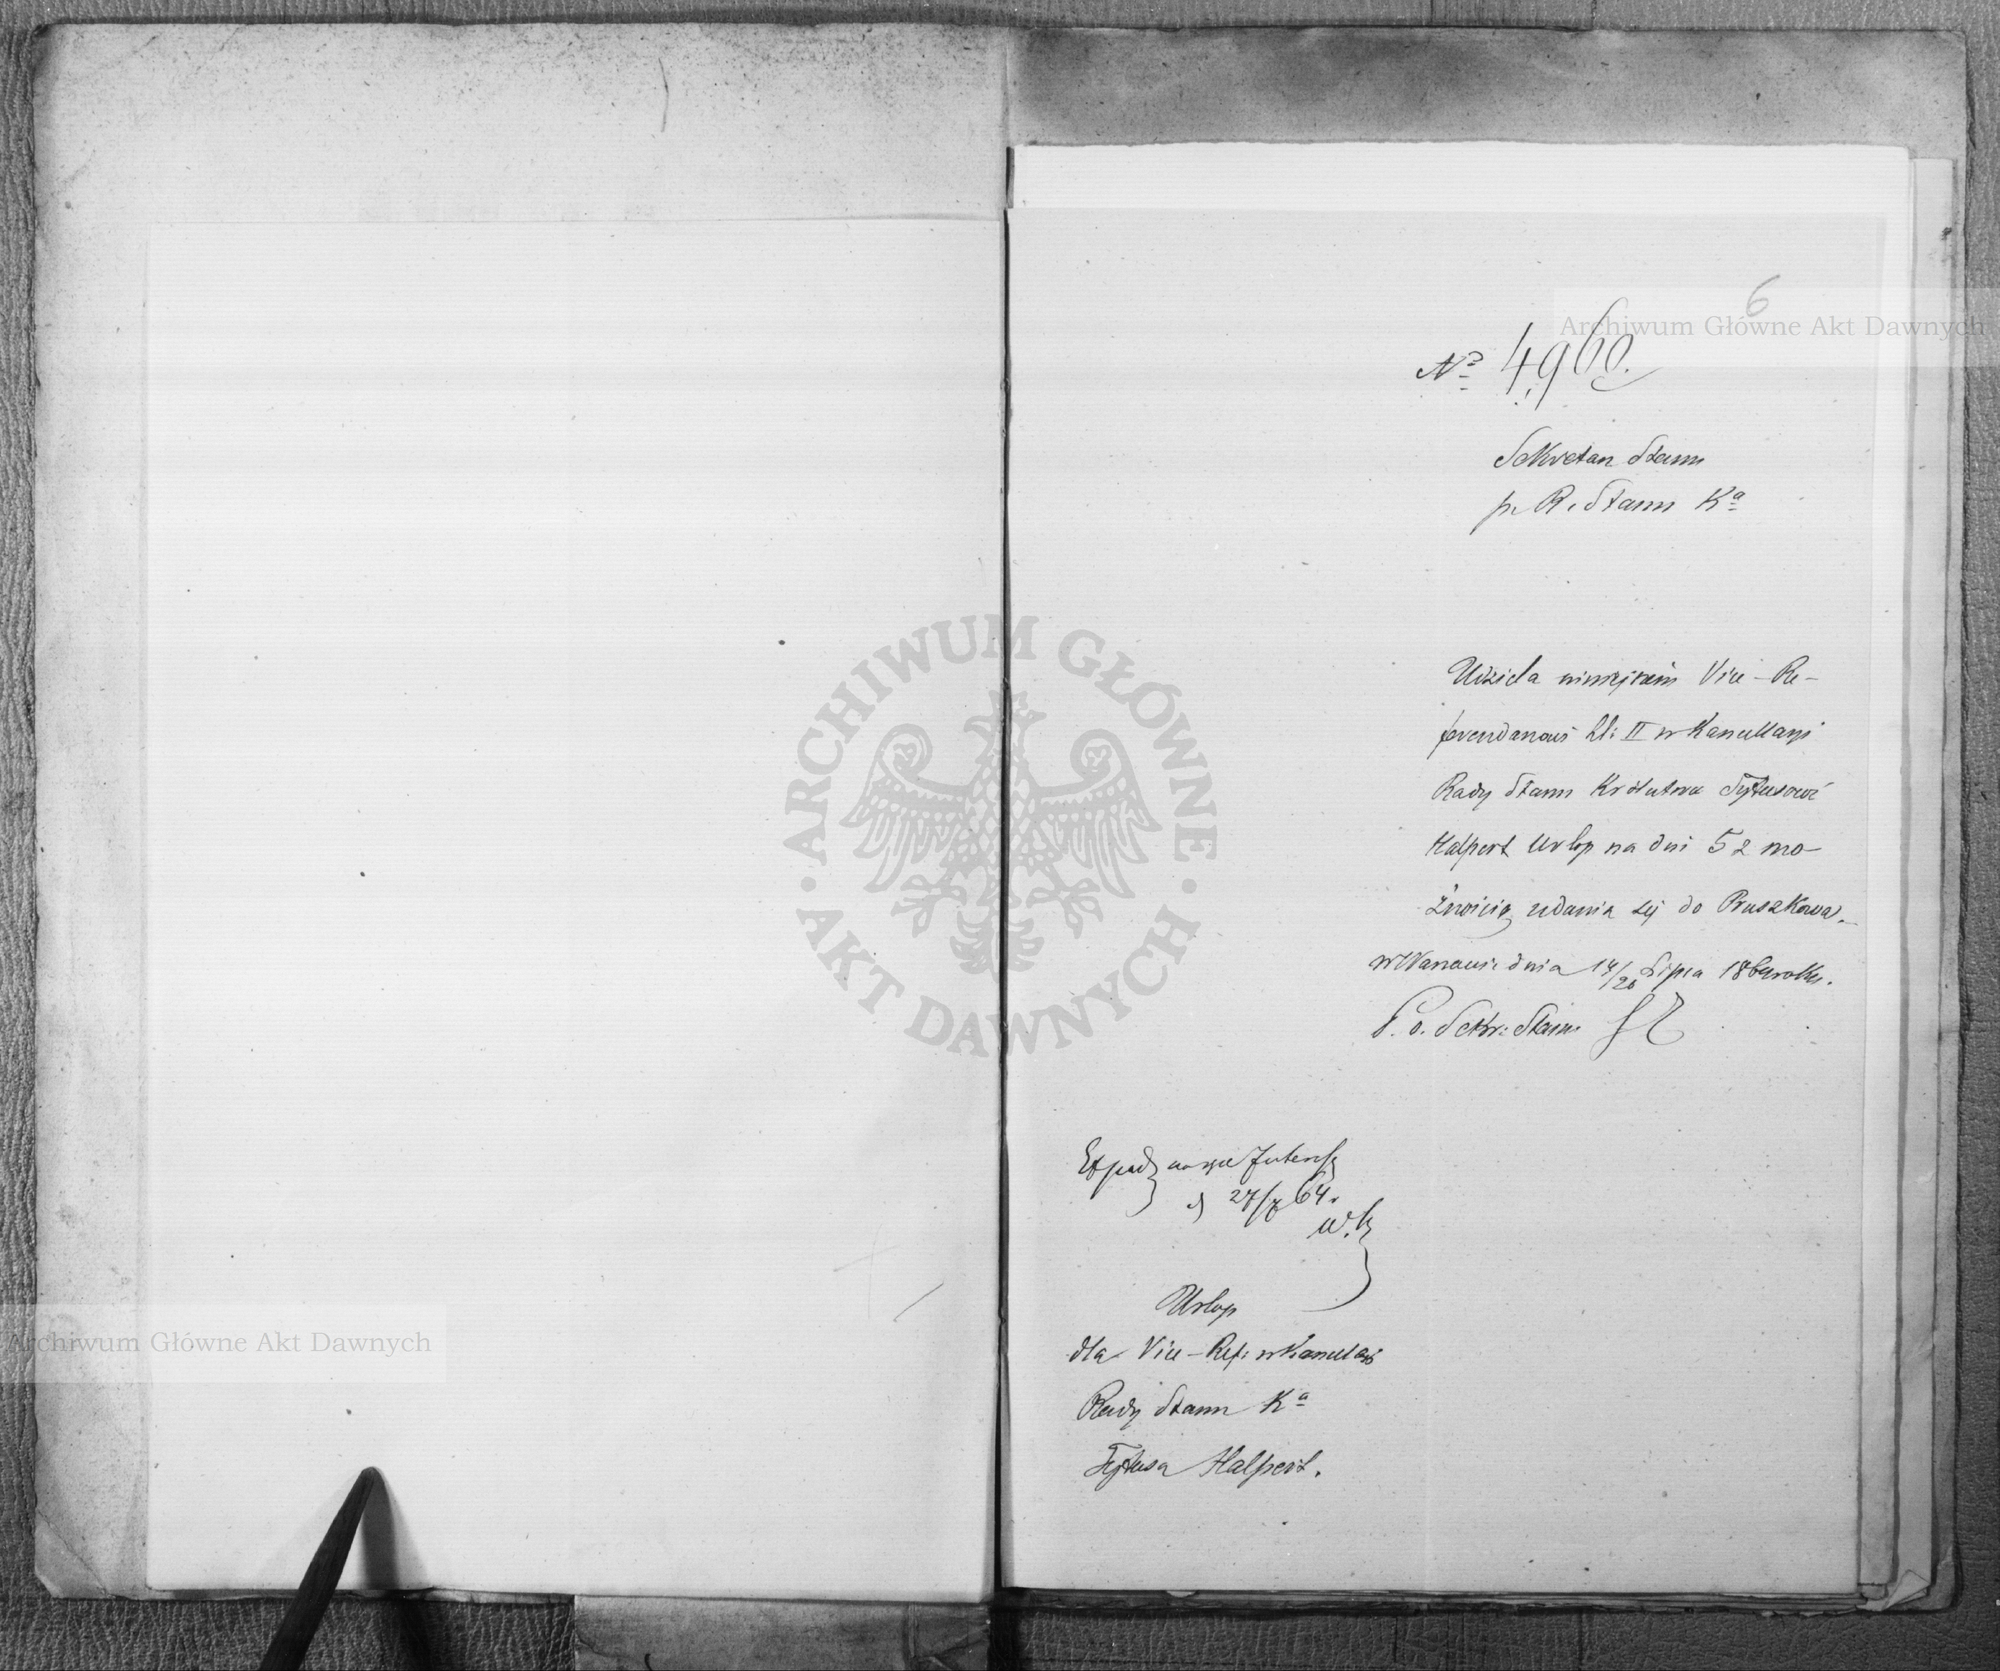 6
Archiwum Główne Akt Dawnych
№ 4960.
Sekretarz Stanu
p. R. Stanu Kª
Udziela niniejszem Vice-Re-
ferendarzowi kl: II w Kancellaryi
Rady Stanu Królestwa Tytusowi
Halpert Urlop na dni 5 z mo-
żnością udania się do Pruszkowa.
w Warszawie dnia Lipca roku.
P. o. Sekr: Stanu
27/7 64.
Urlop
dla Vice-Ref: w Kancellaryi
Rady Stanu Kª
Tytusa Halpert.
ARCHIWUM GŁÓWNE
AKT DAWNYCH
Archiwum Główne Akt Dawnych